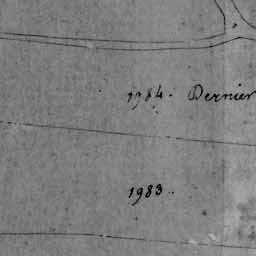 1984. Dernier
1983..